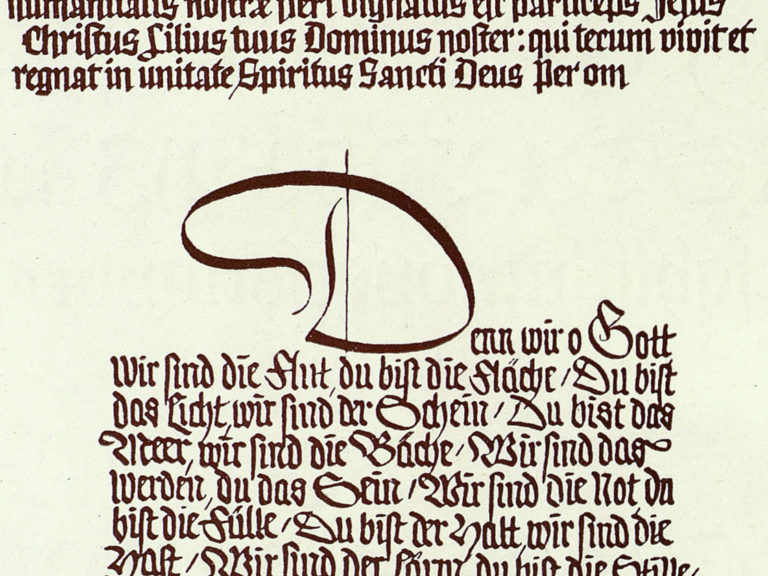 humanitatis nostræ fieri dignatus est particeps Jesus
Christus Filius tuus Dominus noster: qui tecum vivit et
regnat in unitate Spiritus Sancti Deus Per om
Denn wir o Gott
wir sind die Flut, du bist die Fläche / Du bist
das Licht, wir sind der Schein / Du bist das
Meer, wir sind die Bäche / Wir sind das
werden, du das Sein / Wir sind die Not, du
bist die Fülle / Du bist der Halt, wir sind die
Hast / Wir sind der Lärm, du bist die Stille /